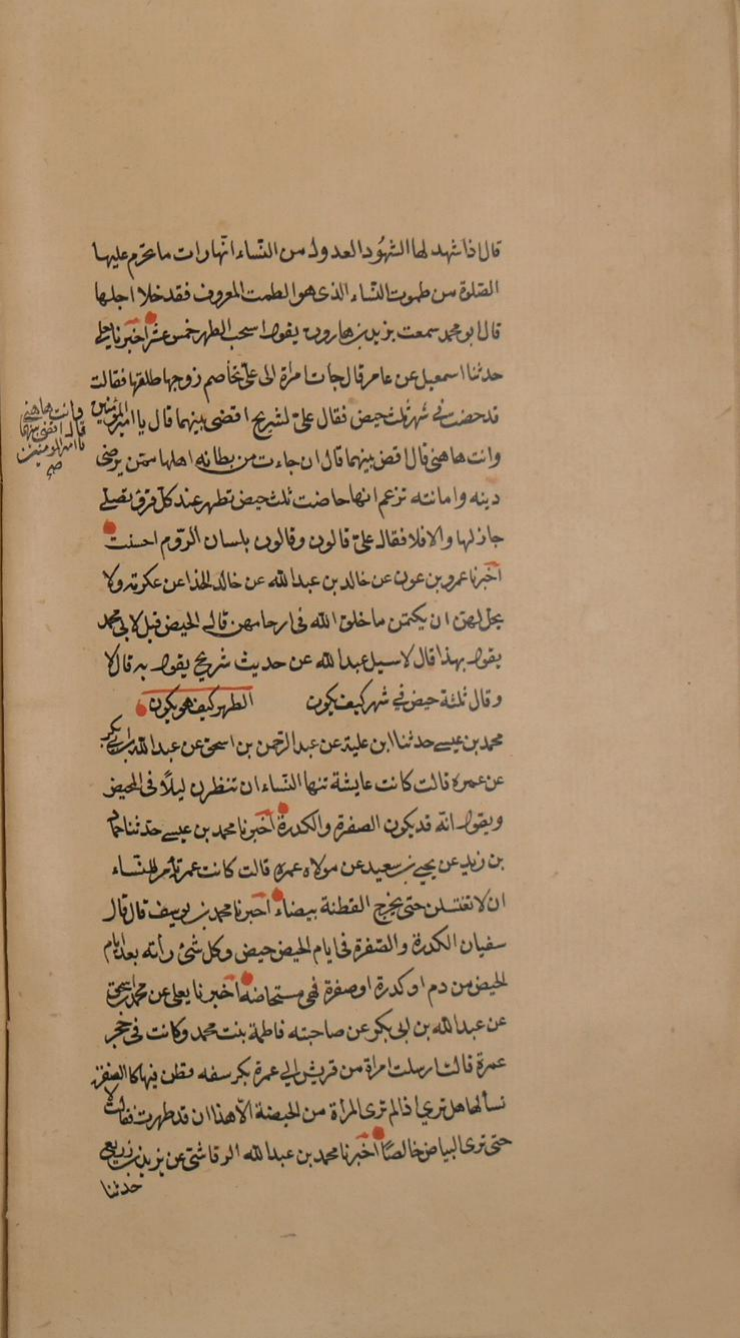 قال اذا شهد لها الشهود العدول من النساء انها رات ما تحرم عليها
الصلوة من طموث النساء الذى هو الطمث المعروف فقد خلا اجلها
قال ابو محمد سمعت يزيد بن هارون يقول استحب الطهر خمس عشر اخبرنا يعلى
حدثنا اسمعيل عن عامر قال جات امراة الى على تخاصم زوجها طلقها فقالت
قد حضت فى شهر ثلث حيض فقال على لشريح اقضى بينهما قال يا امير المؤمنين
وانت هاهنى قال اقض بينهما قال ان جاءت من بطانه اهلها ممن يرضى
دينه وامانته تزعم انها حاضت ثلث حيض تطهر عند كل قرؤ تصلى
جاز لها والا فلا فقال على قالون وقالون بلسان الروم احسنت
اخبرنا عمرو بن عون عن خالد بن عبد الله عن خالد الحذا عن عكرمة ولا
يحل لهن ان يكتمن ما خلق الله فى ارحامهن قال الحيض قيل لابى محمد
يقول بهذا قال لا سيل عبد الله عن حديث شريح يقول به قال لا
وقال ثلثة حيض فى شهر كيف يكون الطهر كيف هو يكون
محمد بن عيسى حدثنا ابن علية عن عبد الرحمن بن اسحق عن عبد الله بن ابى بكر
عن عمرة قالت كانت عايشة تنها النساء ان تنظرن ليلا فى المحيض
ويقول انه قد يكون الصفرة والكدرة اخبرنا محمد بن عيسى حدثنا حماد
بن زيد عن يحيى بن سعيد عن مولاه عمرة قالت كانت عمرة تأمر للنساء
ان لا تغتسلن حتى يخرج القطنة بيضاء اخبرنا محمد بن يوسف قال قال
سفيان الكدرة والصفرة فى ايام الحيض حيض وكل شئ رأته بعد ايام
الحيض من دم او كدرة او صفرة فهى مستحاضه اخبرنا يعلى عن محمد بن اسحق
عن عبد الله بن ابى بكر عن صاحبته فاطمة بنت محمد وكانت فى حجر
عمرة قالت ارسلت امراة من قريش الى عمرة بكرسفه قطن فيها كالصفرة
تسألها هل ترى اذا لم ترى المرأة من الحيضة الا هذا ان قد طهرت فقالت لا
حتى ترى البياض خالصا اخبرنا محمد بن عبد الله الرقاشى عن يزيد بن زريع
حدثنا
وانت هاهنى
قال اقضى بينهما
يا امير المومنين
صح